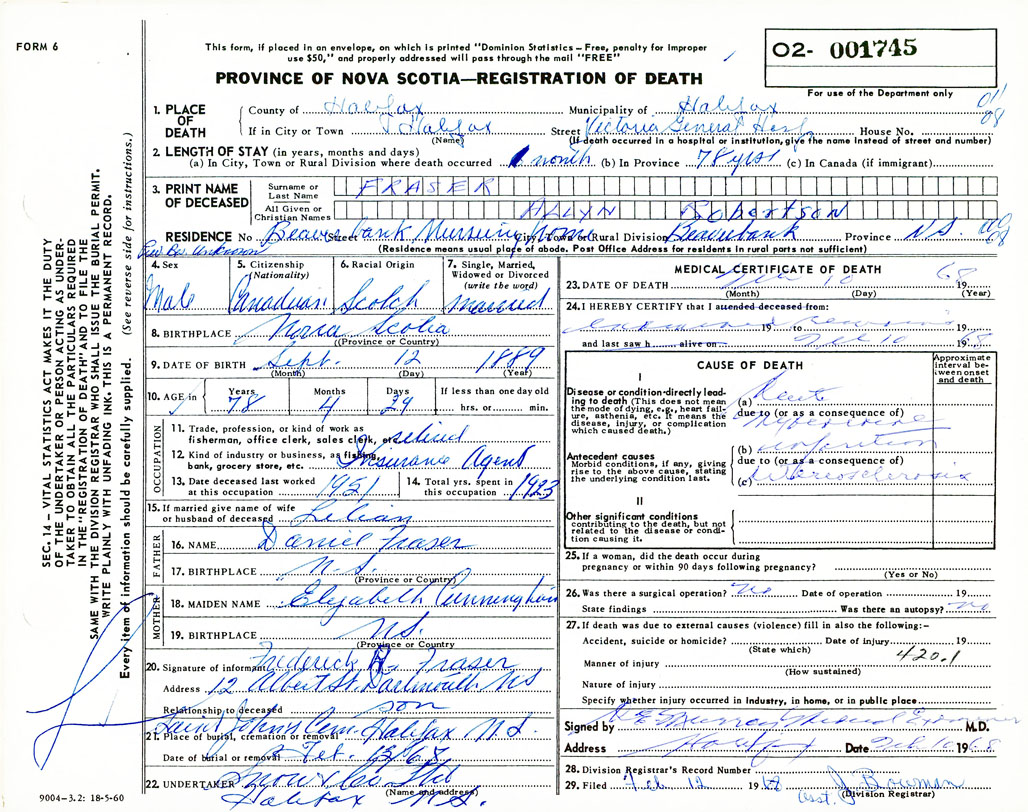 FORM 6
This form, if placed in an envelope, on which is printed "Dominion Statistics—Free, penalty for improper
use $50," and properly addressed will pass through the mail "FREE"
PROVINCE OF NOVA SCOTIA—REGISTRATION OF DEATH
02- 001745
For use of the Department only
08
1. PLACE OF DEATH
County of Halifax Municipality of Halifax
If in City or Town Halifax Street Victoria General Hosp House No.
(Name) (If death occurred in a hospital or institution, give the name instead of street and number)
2. LENGTH OF STAY (in years, months and days)
(a) In City, Town or Rural Division where death occurred 1 month (b) In Province 78 yrs (c) In Canada (if immigrant)
3. PRINT NAME OF DECEASED
Surname or Last Name FRASER
All Given or Christian Names ALLYN Robertson
RESIDENCE No. Street Beaverbank Nursing Home City, Town or Rural Division Beaverbank Province N.S.
08
(Residence means usual place of abode. Post Office Address for residents in rural parts not sufficient)
4. Sex Male
5. Citizenship (Nationality) Canadian
6. Racial Origin Scotch
7. Single, Married, Widowed or Divorced (write the word) married
8. BIRTHPLACE Nova Scotia
(Province or Country)
9. DATE OF BIRTH Sept. 12 1889
(Month) (Day) (Year)
10. AGE in Years 78 Months 4 Days 29 If less than one day old hrs. or min.
OCCUPATION
11. Trade, profession, or kind of work as fisherman, office clerk, sales clerk, etc. retired
12. Kind of industry or business, as fishing, bank, grocery store, etc. Insurance Agent
13. Date deceased last worked at this occupation 1951
14. Total yrs. spent in this occupation 1923
15. If married give name of wife or husband of deceased Lilian
FATHER
16. NAME Daniel Fraser
17. BIRTHPLACE N.S.
(Province or Country)
MOTHER
18. MAIDEN NAME Elizabeth Cunningham
19. BIRTHPLACE N.S.
(Province or Country)
20. Signature of informant Frederick H. Fraser
Address 12 Albert St. Dartmouth NS
Relationship to deceased son
21. Place of burial, cremation or removal Saint Johns Cem. Halifax N.S.
Date of burial or removal Feb. 13/68
22. UNDERTAKER Snow & Co Ltd
(Name and address)
Halifax N.S.
MEDICAL CERTIFICATE OF DEATH
23. DATE OF DEATH 10 1968
(Month) (Day) (Year)
24. I HEREBY CERTIFY that I attended deceased from:
19 to 19
and last saw h alive on Feb 10 1968
CAUSE OF DEATH
Approximate interval between onset and death
I
Disease or condition directly leading to death (This does not mean the mode of dying, e.g., heart failure, asthenia, etc. It means the disease, injury, or complication which caused death.)
(a) Acute
due to (or as a consequence of)
Myocardial
(b) infarction
Antecedent causes
Morbid conditions, if any, giving rise to the above cause, stating the underlying condition last.
due to (or as a consequence of)
(c) arteriosclerosis
II
Other significant conditions
contributing to the death, but not related to the disease or condition causing it.
25. If a woman, did the death occur during
pregnancy or within 90 days following pregnancy?
(Yes or No)
26. Was there a surgical operation? No Date of operation 19
State findings Was there an autopsy? No
27. If death was due to external causes (violence) fill in also the following:—
Accident, suicide or homicide? Date of injury 19
(State which)
420.1
Manner of injury
(How sustained)
Nature of injury
Specify whether injury occurred in industry, in home, or in public place
Signed by Murray Medical Examiner M.D.
Address Halifax Date Feb 10 1968
28. Division Registrar's Record Number
29. Filed Feb 12 1968 J. Bowman
Asst. (Division Registrar)
SEC. 14 – VITAL STATISTICS ACT MAKES IT THE DUTY
OF THE UNDERTAKER OR PERSON ACTING AS UNDER-
TAKER TO OBTAIN ALL THE PARTICULARS REQUIRED
IN THE "REGISTRATION OF DEATH" AND TO FILE THE
SAME WITH THE DIVISION REGISTRAR WHO SHALL ISSUE THE BURIAL PERMIT.
WRITE PLAINLY WITH UNFADING INK. THIS IS A PERMANENT RECORD.
Every item of information should be carefully supplied. (See reverse side for instructions.)
9004–3.2: 18-5-60